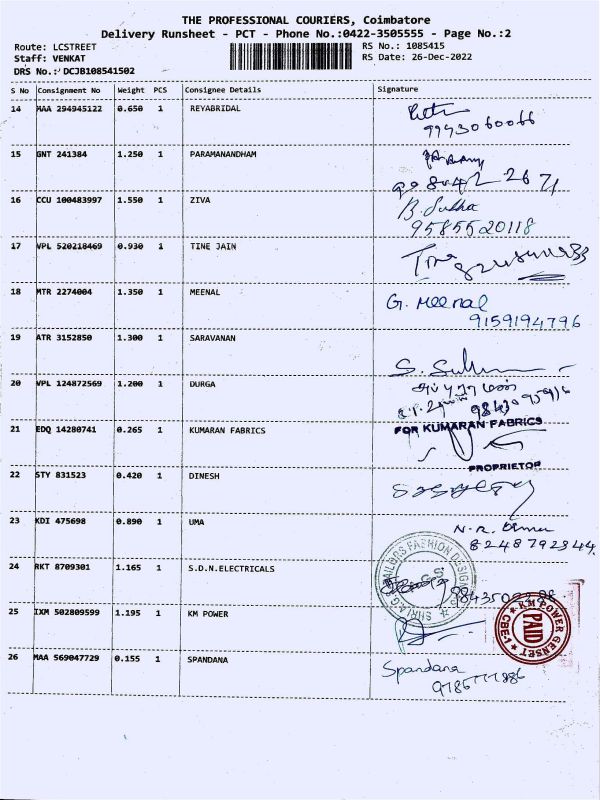 THE PROFESSIONAL COURIERS, Coimbatore
Delivery Runsheet - PCT - Phone No.:0422-3505555 - Page No.:2
Route: LCSTREET RS No.: 1085415
Staff: VENKAT RS Date: 26-Dec-2022
DRS No.: DCJB108541502
S No Consignment No Weight PCS Consignee Details Signature
14 MAA 294945122 0.650 1 REYABRIDAL
9943060066
15 GNT 241384 1.250 1 PARAMANANDHAM
16 CCU 100483997 1.550 1 ZIVA B. Sudha
9585520118
17 VPL 520218469 0.930 1 TINE JAIN Tine
18 MTR 2274004 1.350 1 MEENAL G. Meenal
9159194796
19 ATR 3152850 1.300 1 SARAVANAN
20 VPL 124872569 1.200 1 DURGA
21 EDQ 14280741 0.265 1 KUMARAN FABRICS FOR KUMARAN FABRICS
PROPRIETOR
22 STY 831523 0.420 1 DINESH
23 KDI 475698 0.890 1 UMA N.R.
8248792344
24 RKT 8709301 1.165 1 S.D.N.ELECTRICALS
TAILORS FASHION DESIGNER
25 IXM 502809599 1.195 1 KM POWER
KM POWER GENSET
PAID
CBE-1
26 MAA 569047729 0.155 1 SPANDANA Spandana